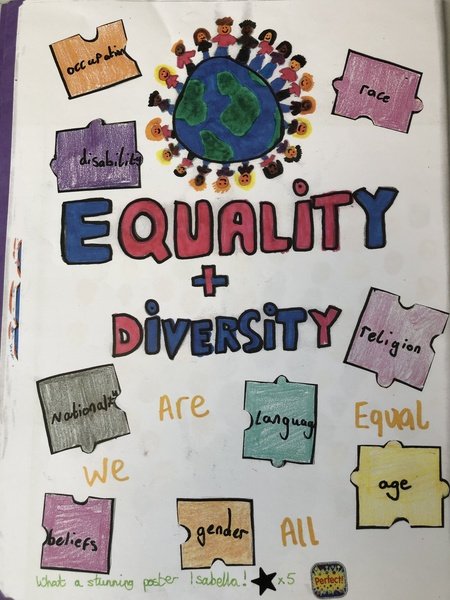 occupation
race
disability
EQUALITY
+
DiVERSiTY
religion
Nationality
Are
Language
Equal
We
age
beliefs
gender
All
What a stunning poster Isabella! ★ x5
Perfect!